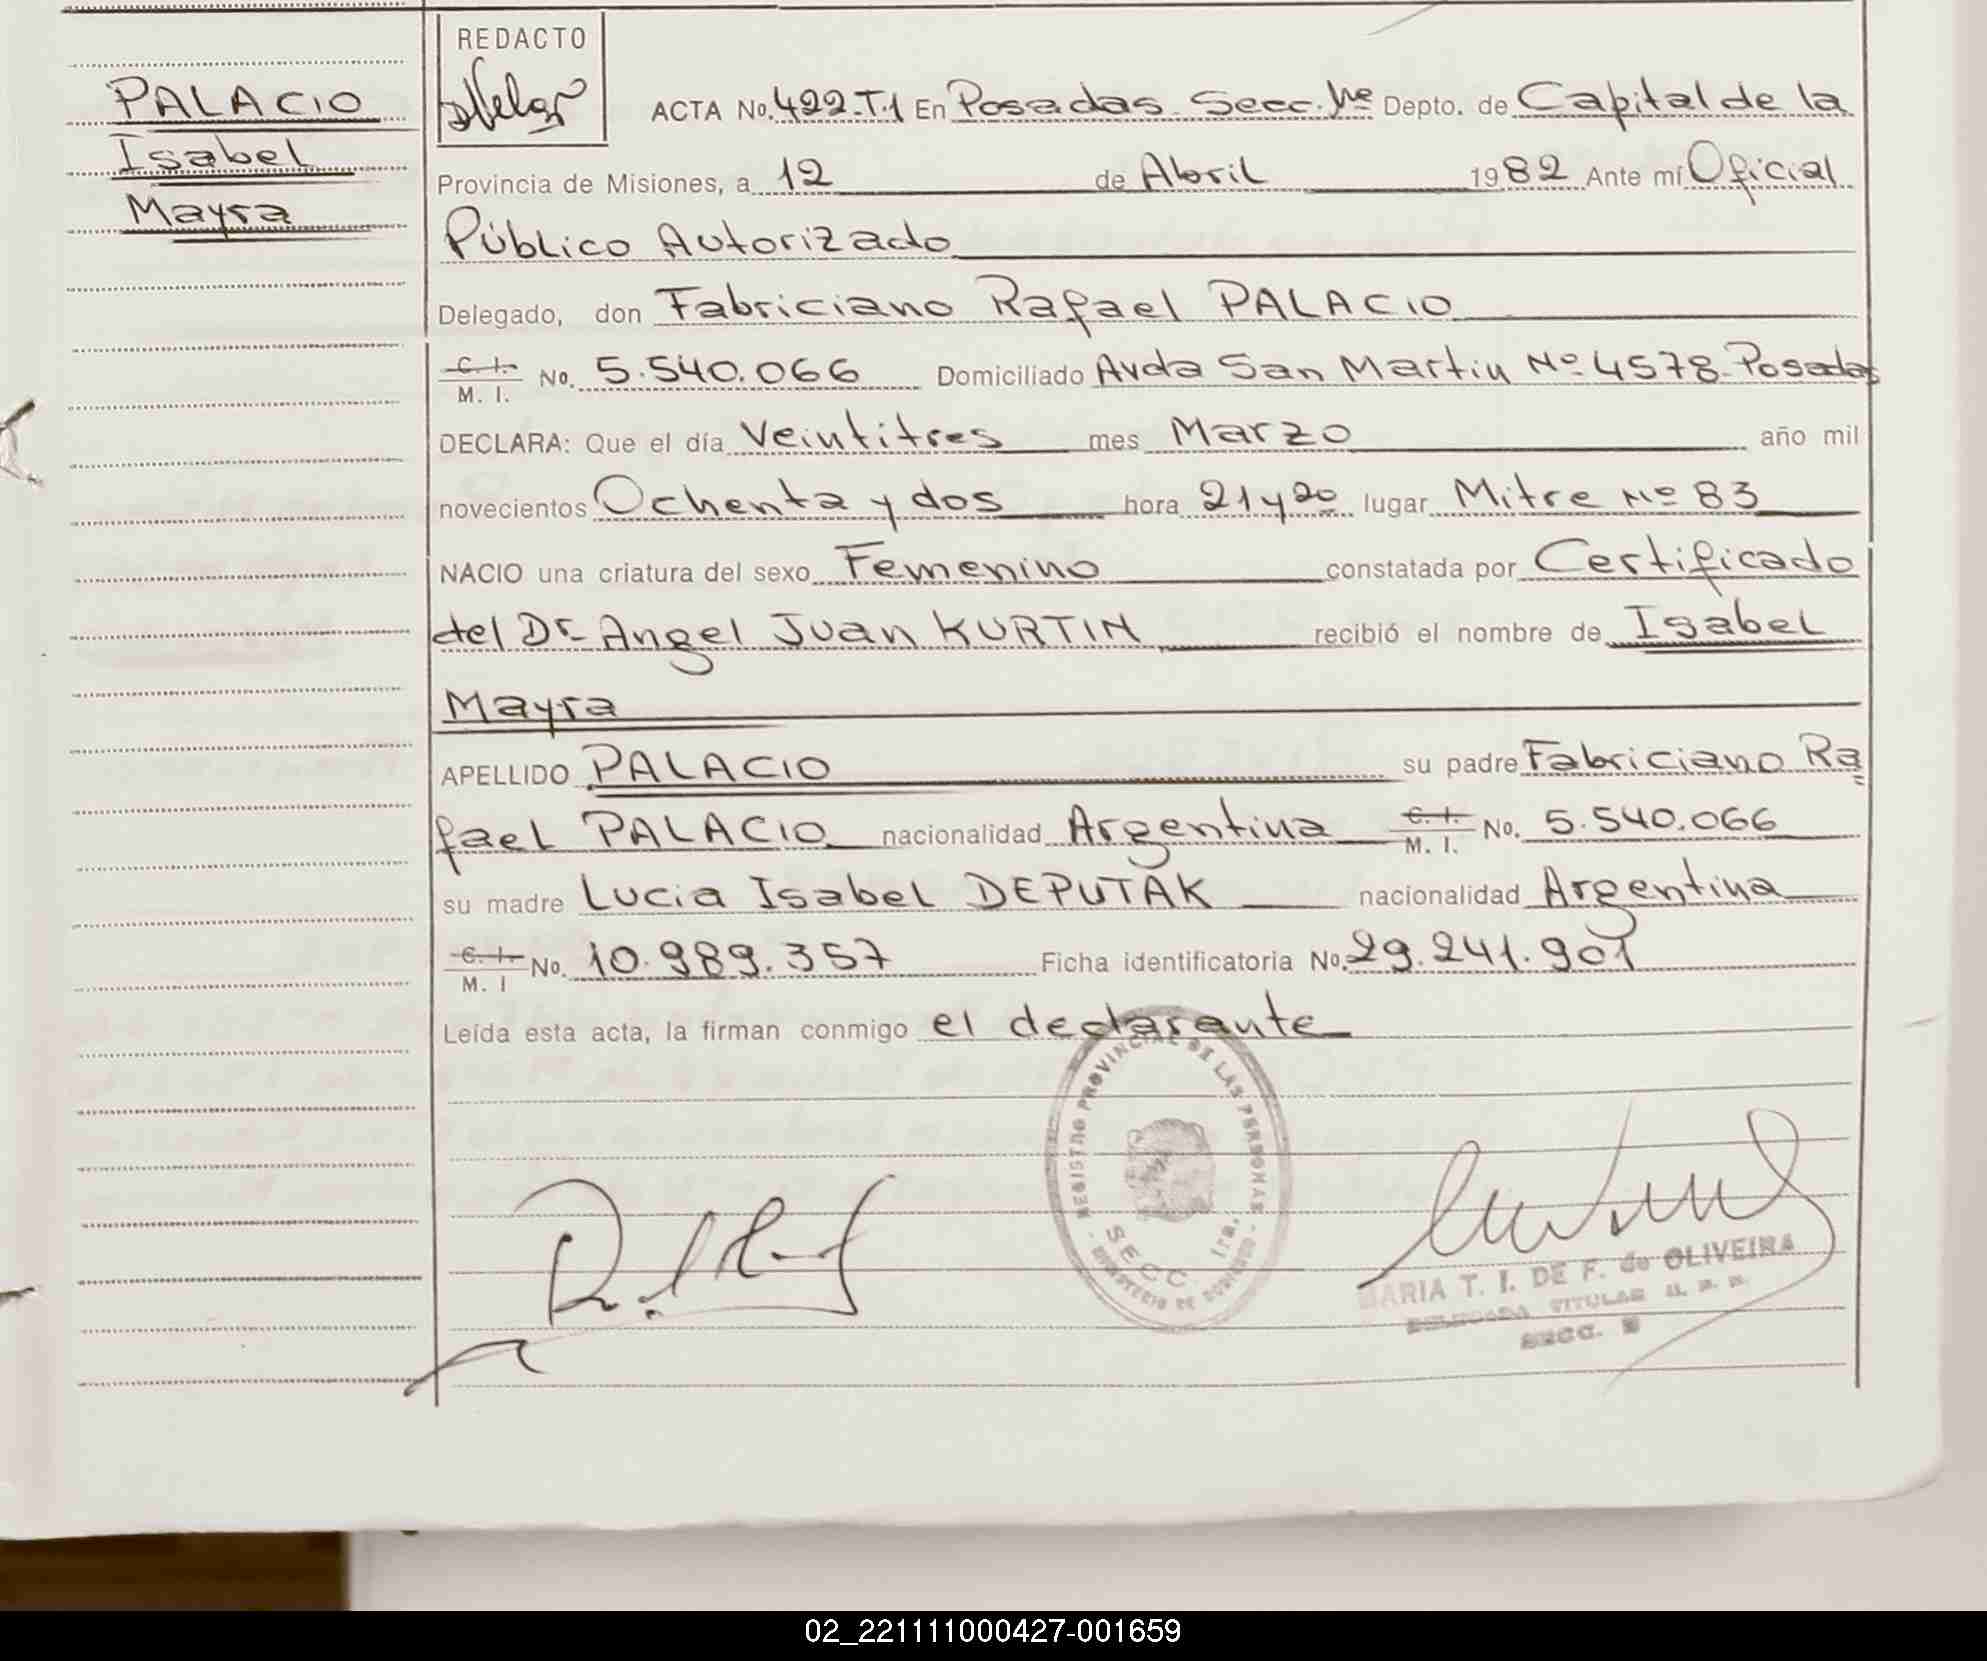 REDACTO
PALACIO
Isabel
Mayra
ACTA No. 422-T.1 En Posadas Secc. 1ra Depto. de Capital de la
Provincia de Misiones, a 12 de Abril 1982 Ante mí Oficial
Público Autorizado
Delegado, don Fabriciano Rafael PALACIO
C. I.
M. I. No. 5.540.066 Domiciliado Avda San Martin Nº 4578 - Posadas
DECLARA: Que el día Veintitres mes Marzo año mil
novecientos Ochenta y dos hora 21 y 20 lugar Mitre Nº 83
NACIO una criatura del sexo Femenino constatada por Certificado
del Dr. Angel Juan KURTIN recibió el nombre de Isabel
Mayra
APELLIDO PALACIO su padre Fabriciano Ra
fael PALACIO nacionalidad Argentina C. I.
M. I. No. 5.540.066
su madre Lucia Isabel DEPUTAK nacionalidad Argentina
C. I.
M. I No. 10.989.357 Ficha identificatoria No. 29.241.901
Leída esta acta, la firman conmigo el declarante
REGISTRO PROVINCIAL DE LAS PERSONAS
SECC. 1ra.
MINISTERIO DE GOBIERNO
MARIA T. I. DE F. de OLIVEIRA
TITULAR
SECC.
02_221111000427-001659